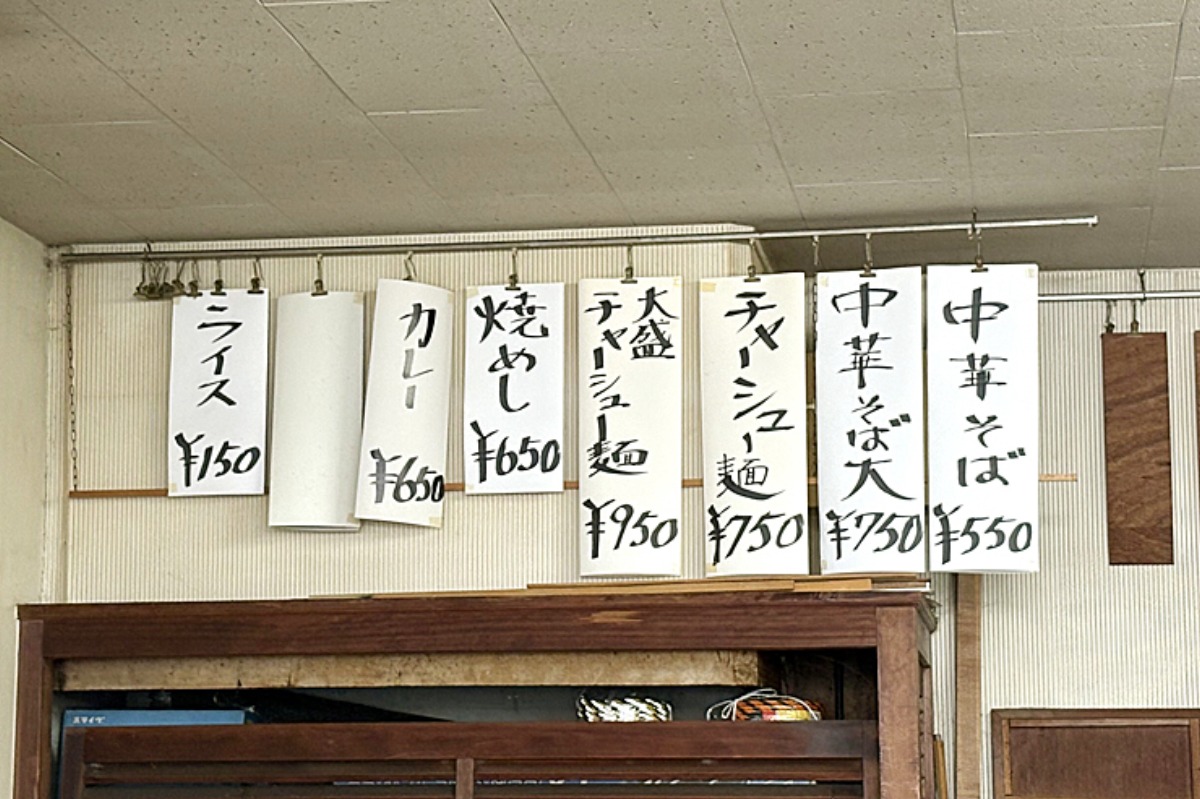 中華そば
¥550
中華そば大
¥750
チャーシュー麺
¥750
大盛
チャーシュー麺
¥950
焼めし
¥650
カレー
¥650
ライス
¥150